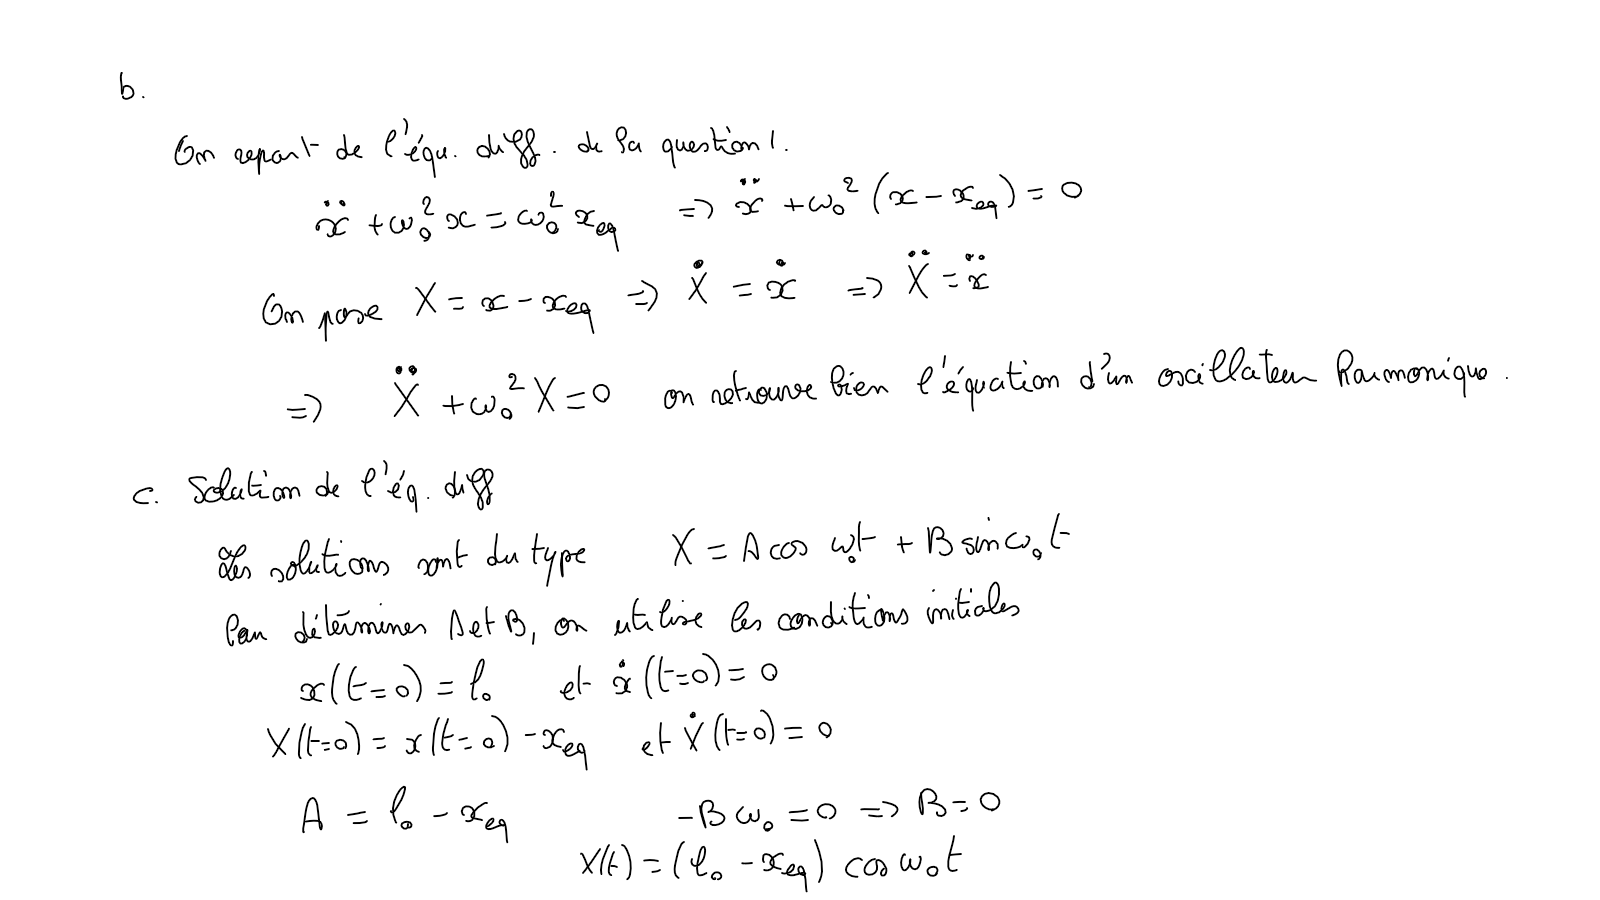 b.
On repart de l'équ. diff. de la question 1.
ẍ + ω₀² x = ω₀² x_eq => ẍ + ω₀² (x - x_eq) = 0
On pose X = x - x_eq => Ẋ = ẋ => Ẍ = ẍ
=> Ẍ + ω₀² X = 0 on retrouve bien l'équation d'un oscillateur harmonique.
c. Solution de l'éq. diff
Les solutions sont du type X = A cos ω₀t + B sin ω₀t
Pour déterminer A et B, on utilise les conditions initiales
x(t=0) = l₀ et ẋ(t=0) = 0
X(t=0) = x(t=0) - x_eq et Ẋ(t=0) = 0
A = l₀ - x_eq -B ω₀ = 0 => B = 0
X(t) = (l₀ - x_eq) cos ω₀t